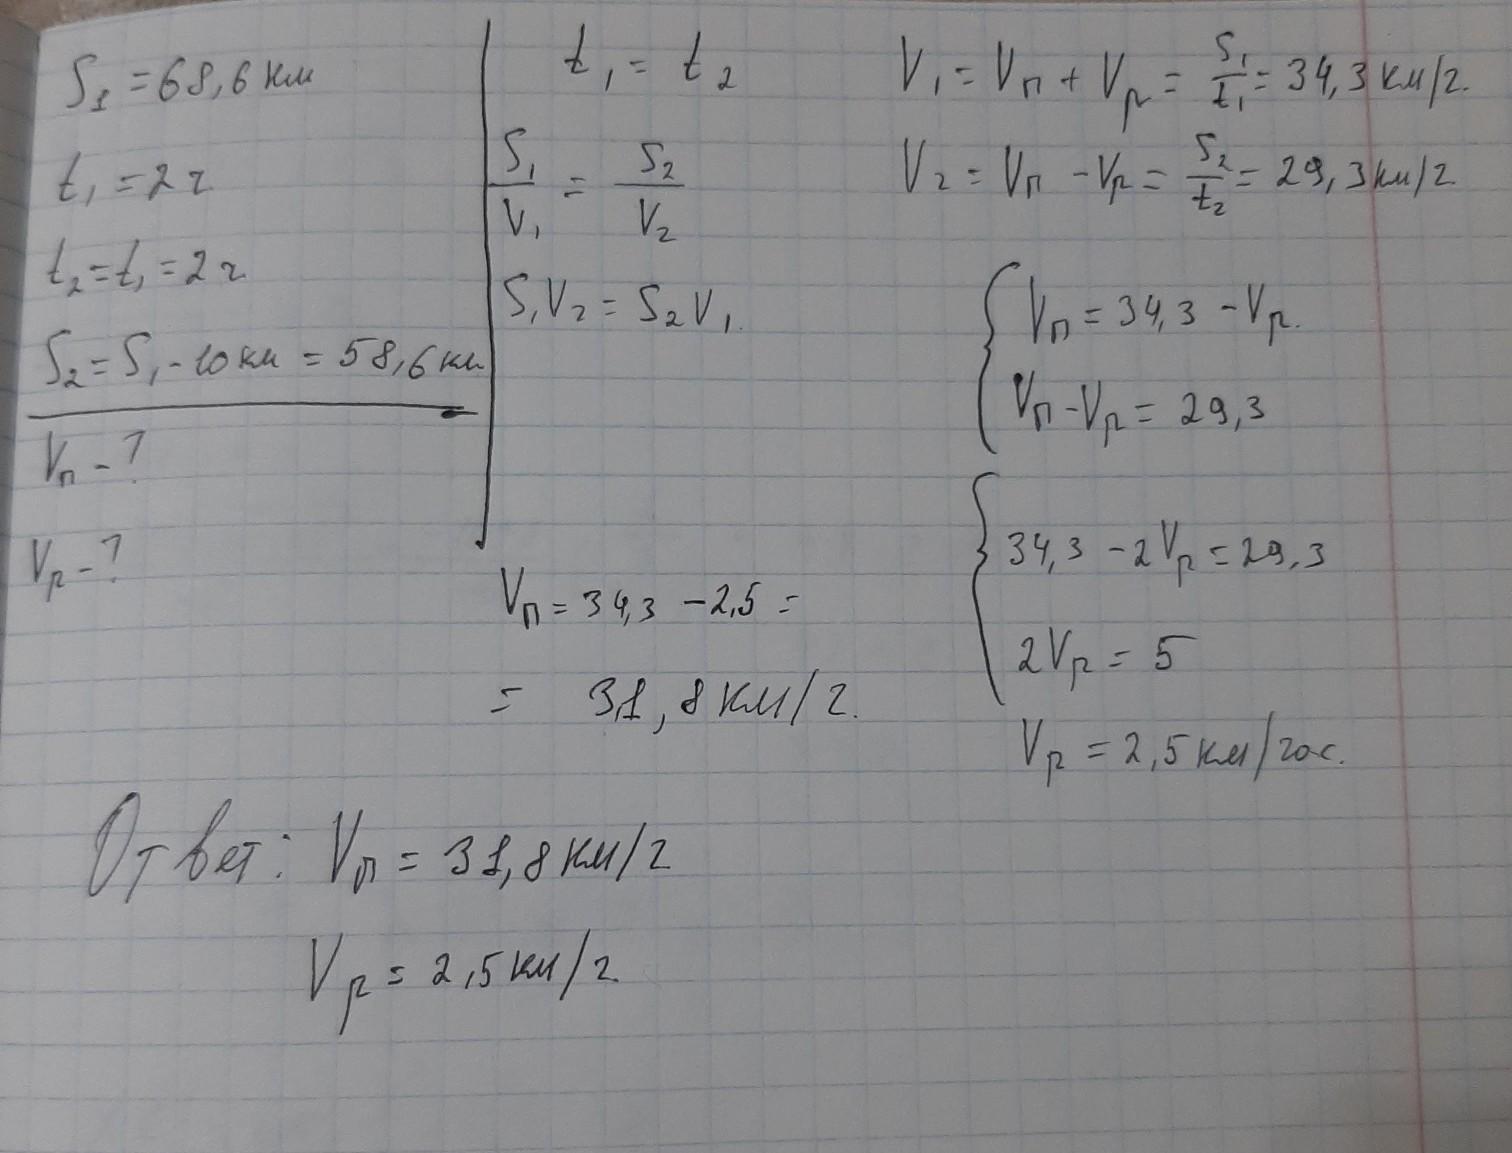 S₁ = 68,6 км
t₁ = 2 ч
t₂ = t₁ = 2 ч
S₂ = S₁ - 10 км = 58,6 км
Vп - ?
Vр - ?
t₁ = t₂
S₁/V₁ = S₂/V₂
S₁V₂ = S₂V₁.
V₁ = Vп + Vр = S₁/t₁ = 34,3 км/ч.
V₂ = Vп - Vр = S₂/t₂ = 29,3 км/ч
{ Vп = 34,3 - Vр.
Vп - Vр = 29,3
{ 34,3 - 2Vр = 29,3
2Vр = 5
Vр = 2,5 км/час.
Vп = 34,3 - 2,5 =
= 31,8 км/ч.
Ответ: Vп = 31,8 км/ч
Vр = 2,5 км/ч.